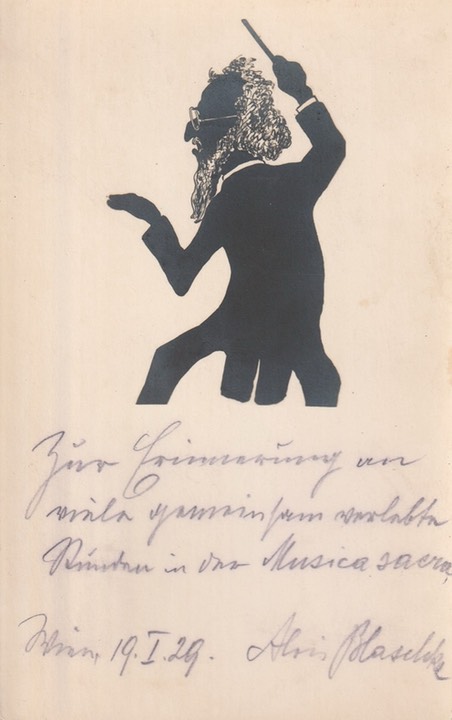 Zur Erinnerung an
viele gemeinsam verlebte
Stunden in der Musica sacra
Wien, 19. I. 29. Alois Blaschke